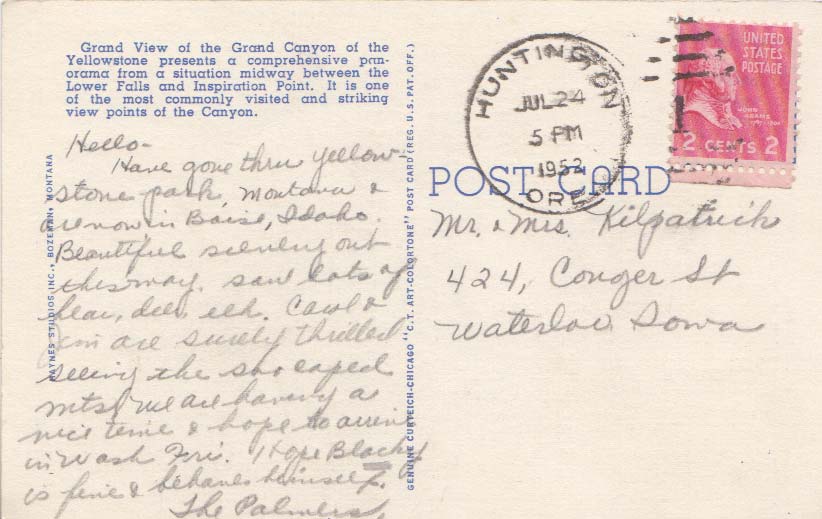 Grand View of the Grand Canyon of the
Yellowstone presents a comprehensive pan-
orama from a situation midway between the
Lower Falls and Inspiration Point. It is one
of the most commonly visited and striking
view points of the Canyon.
Hello-
Have gone thru yellow-
stone park, Montana &
are now in Boise, Idaho.
Beautiful scenery out
this way. saw lots of
bear, deer, elk. Carol &
Jim are surely thrilled
seeing the sno caped
mts. we are having a
nice time & hope to arrive
in Wash Fri. Hope Blacky
is fine & behaves himself.
The Palmers,
HAYNES STUDIOS INC., BOZEMAN, MONTANA
GENUINE CURTEICH-CHICAGO "C.T. ART-COLORTONE" POST CARD (REG. U.S. PAT. OFF.)
HUNTINGTON
JUL 24
5 PM
1952
ORE.
UNITED
STATES
POSTAGE
JOHN
ADAMS
2 CENTS 2
POST CARD
Mr. & Mrs. Kilpatrick
424, Conger St
Waterloo Iowa